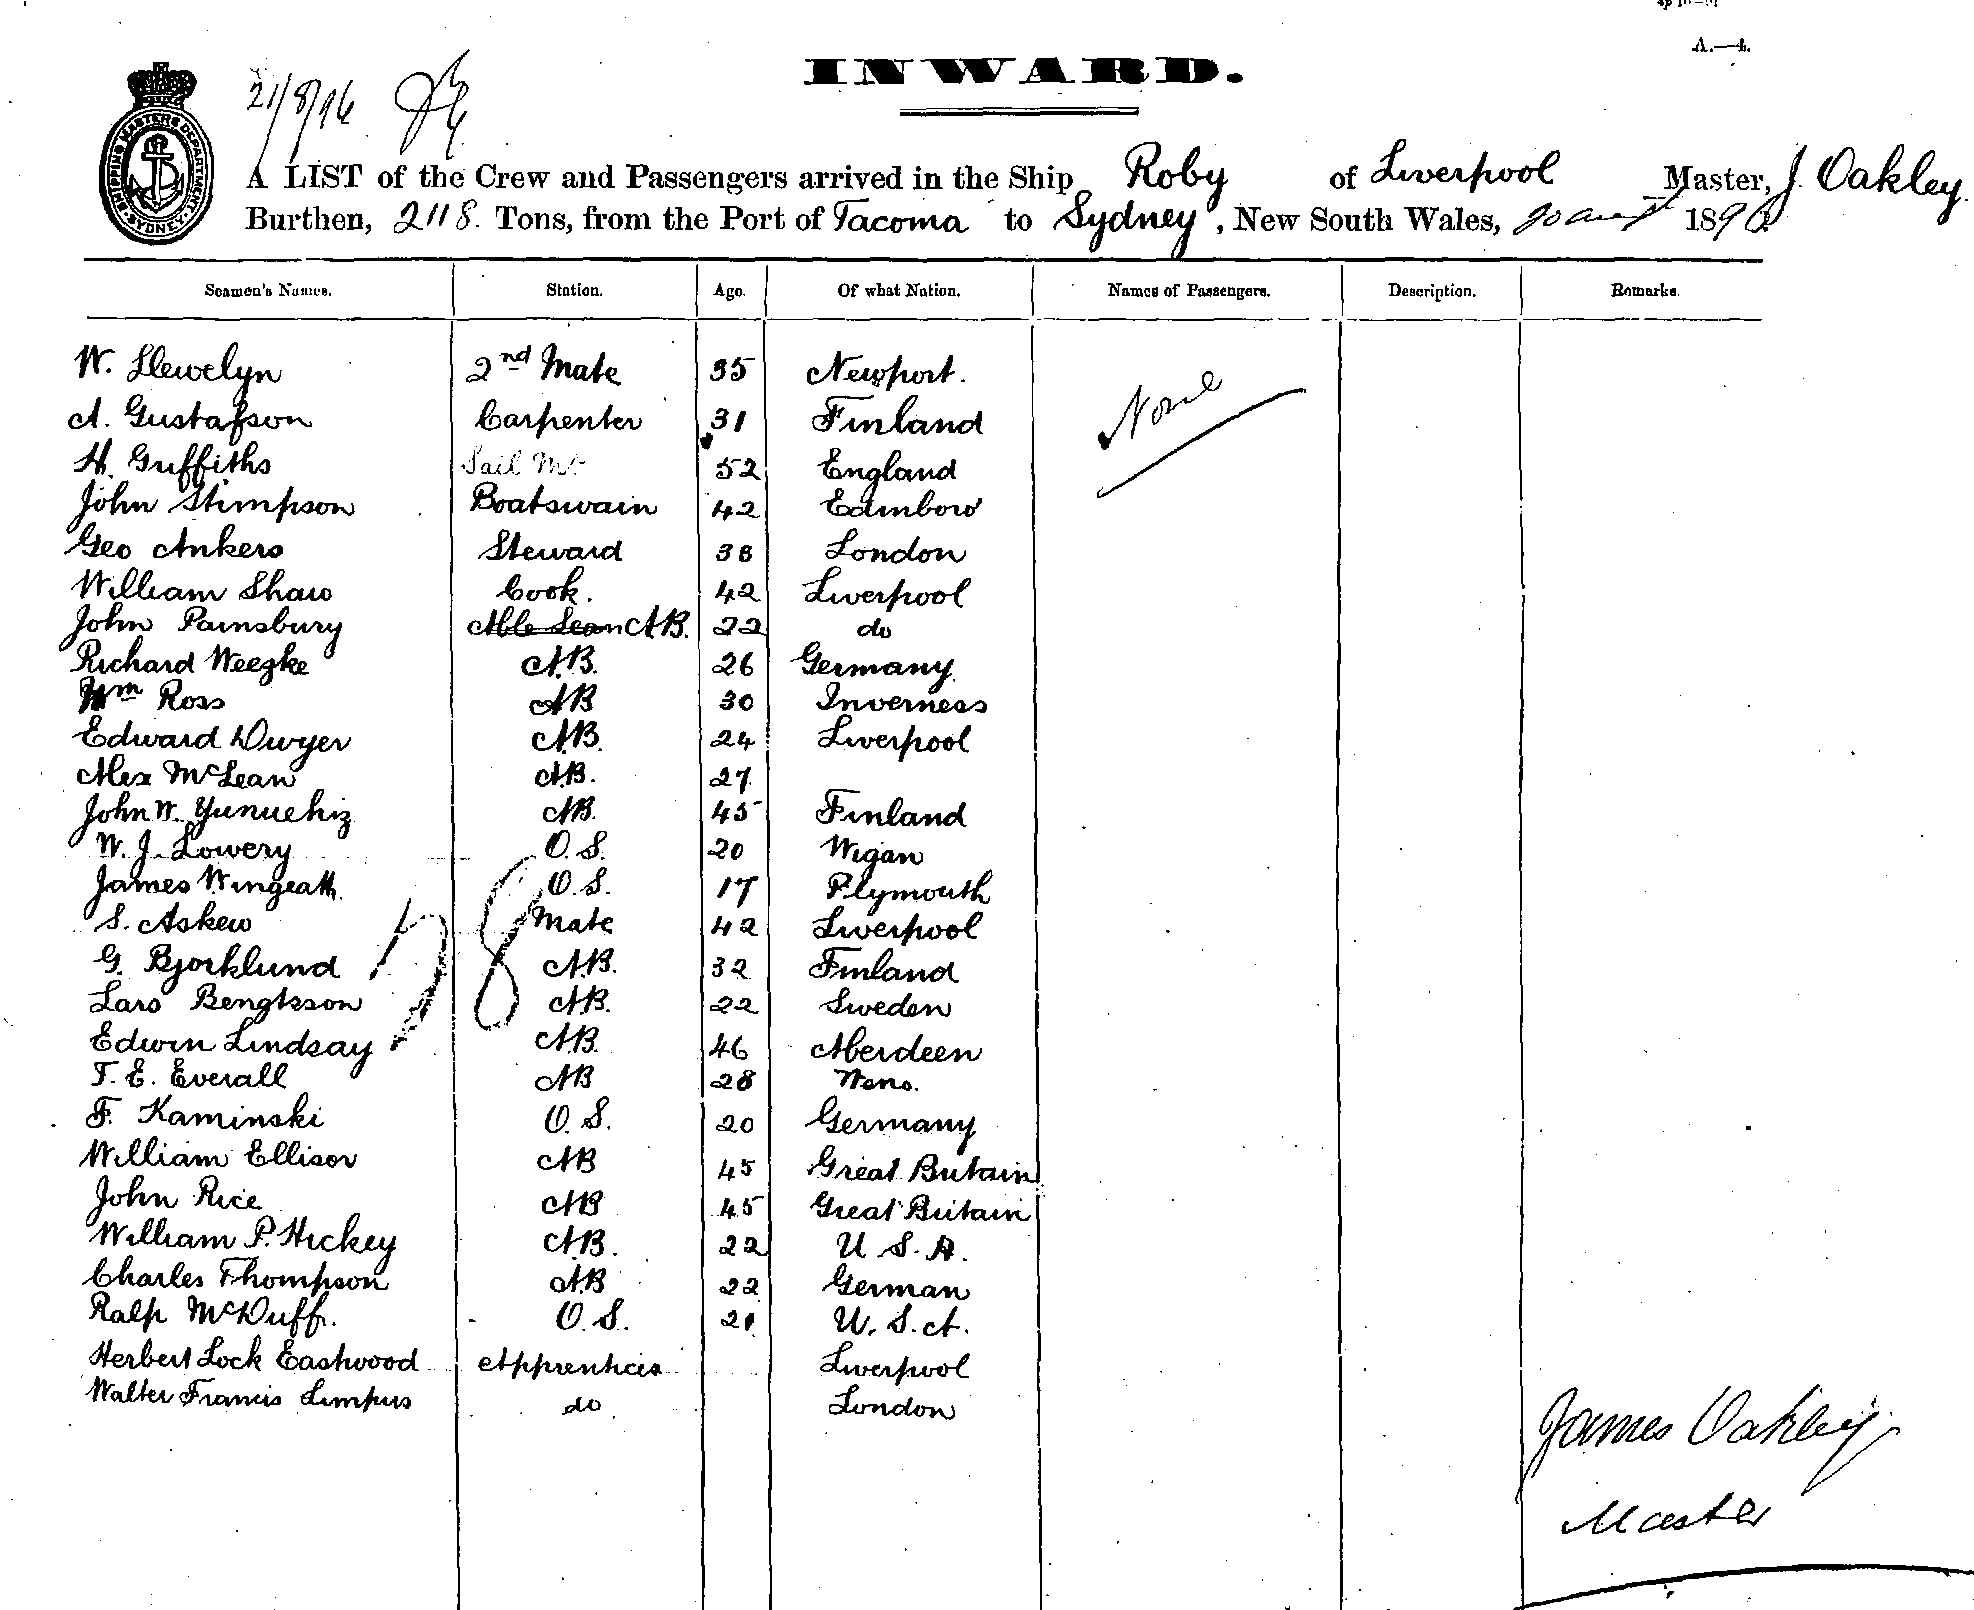 A.—4.
INWARD.
21/8/96
SHIPPING MASTERS DEPARTMENT SYDNEY
A LIST of the Crew and Passengers arrived in the Ship Roby of Liverpool Master, J. Oakley
Burthen, 2118. Tons, from the Port of Tacoma to Sydney, New South Wales, 20 augt 1896
Seamen's Names. Station. Age. Of what Nation. Names of Passengers. Description. Remarks.
W. Llewelyn 2nd Mate 35 Newport. None
A. Gustafson Carpenter 31 Finland
H. Griffiths Sail Mr 52 England
John Stimpson Boatswain 42 Edinboro
Geo Ankers Steward 38 London
William Shaw Cook. 42 Liverpool
John Painsbury Able Sean A.B. 22 do
Richard Weezke A.B. 26 Germany
Wm Ross AB 30 Inverness
Edward Dwyer A.B. 24 Liverpool
Alex McLean A.B. 27
John W. Yunuehiz AB. 45 Finland
W. J. Lowery O. S. 20 Wigan
James Wingeath O. S. 17 Plymouth
S. Askew Mate 42 Liverpool
G. Bjorklund A.B. 32 Finland
Lars Bengtsson A.B. 22 Sweden
28
Edwin Lindsay A.B. 46 Aberdeen
T. E. Everall AB 28
F. Kaminski O. S. 20 Germany
William Ellison AB 45 Great Britain
John Rice AB 45 Great Britain
William P. Hickey A.B. 22 U. S. A.
Charles Thompson AB 22 German
Ralp McDuff. O. S. 21 U. S. A.
Herbert Lock Eastwood Apprentices Liverpool
Walter Francis Limpus do London
James Oakley
Master